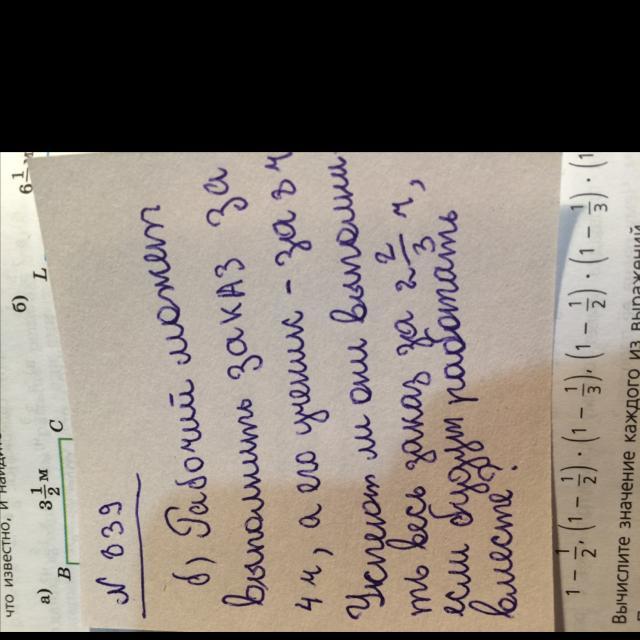 что известно, и найдите
а)
б)
B
3 1/2 м
C
L
6 1/2 м
N 839
б) Рабочий может
выполнить заказ за
4 ч, а его ученик - за 8 ч
Успеют ли они выполни
ть весь заказ за 2 2/3 ч,
если будут работать
вместе?
1 − 1/2, (1 − 1/2) · (1 − 1/3), (1 − 1/2) · (1 − 1/3) · (1
Вычислите значение каждого из выражений